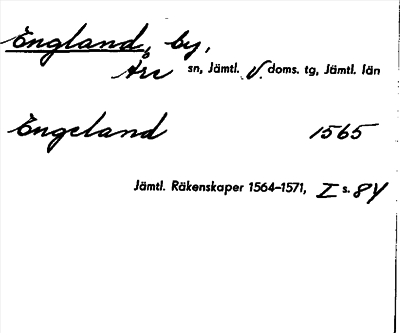 England, by,
Åre sn, Jämtl. V. doms. tg, Jämtl. län
Engeland 1565
Jämtl. Räkenskaper 1564-1571, I s. 84